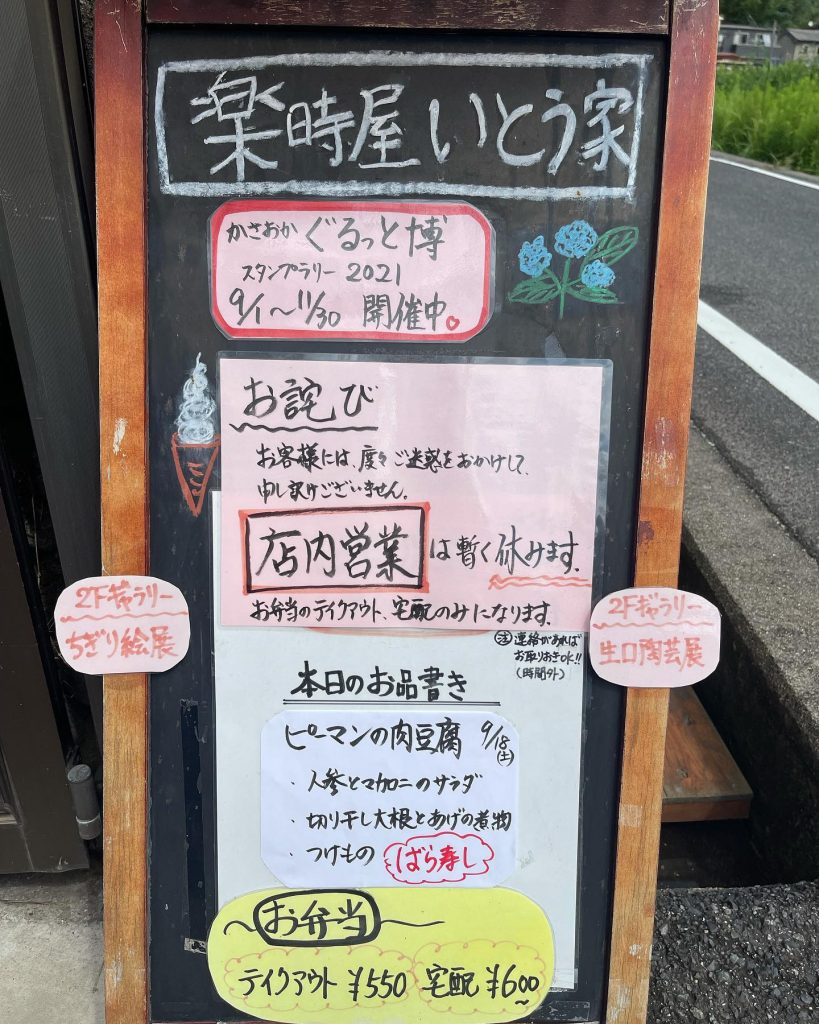 楽時屋いとう家
かさおか ぐるっと博
スタンプラリー 2021
9/1〜11/30 開催中。
お詫び
お客様には、度々ご迷惑をおかけして、
申し訳けございません。
店内営業は暫く休みます。
お弁当のテイクアウト、宅配のみになります。
注 連絡があれば
お取りおきOK!!
(時間外)
2Fギャラリー
ちぎり絵展
2Fギャラリー
生口陶芸展
本日のお品書き
ピーマンの肉豆腐 9/18(土)
・人参とマカロニのサラダ
・切り干し大根とあげの煮物
・つけもの ばら寿し
〜お弁当〜
テイクアウト ¥550 宅配 ¥600〜